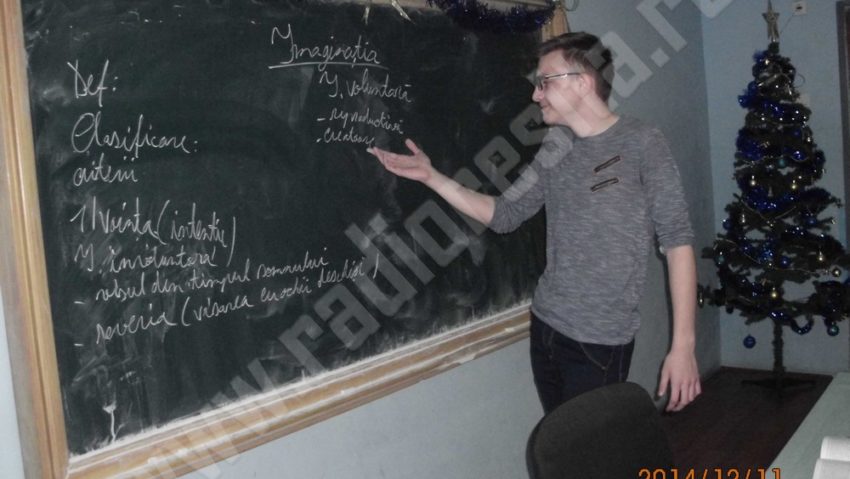 Imaginația
Def:
Clasificare:
criterii
1/ Voința (intenție)
I. involuntară
- visul din timpul somnului
- reveria (visarea cu ochii deschiși)
I. voluntară
- reproductivă
- creatoare
www.radioresita.ro
2014/12/11